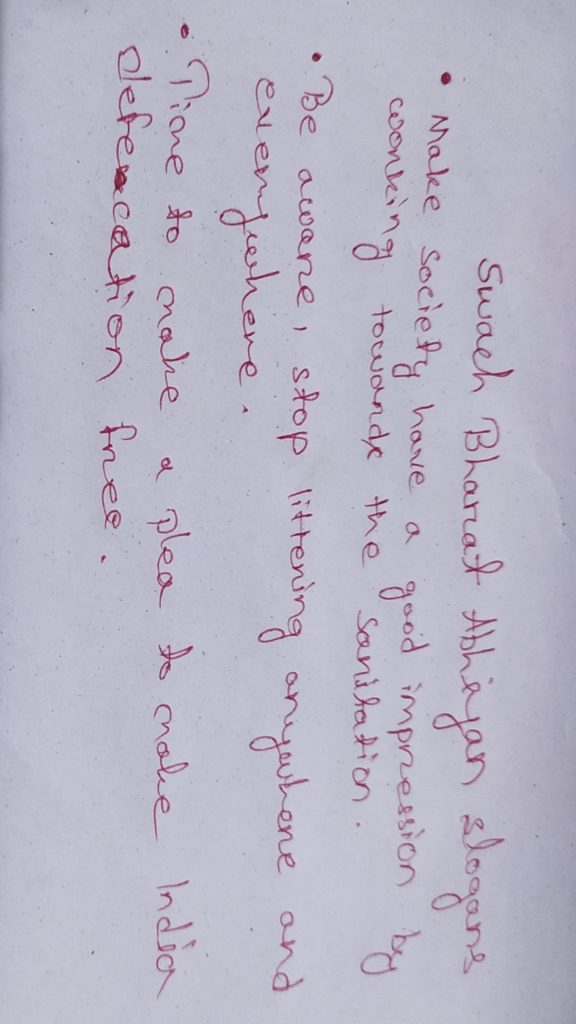 Swach Bharat Abhiyan slogans
• Make society have a good impression by
working towards the sanitation.
• Be aware, stop littering anywhere and
everywhere.
• Time to make a plea to make India
defecation free.